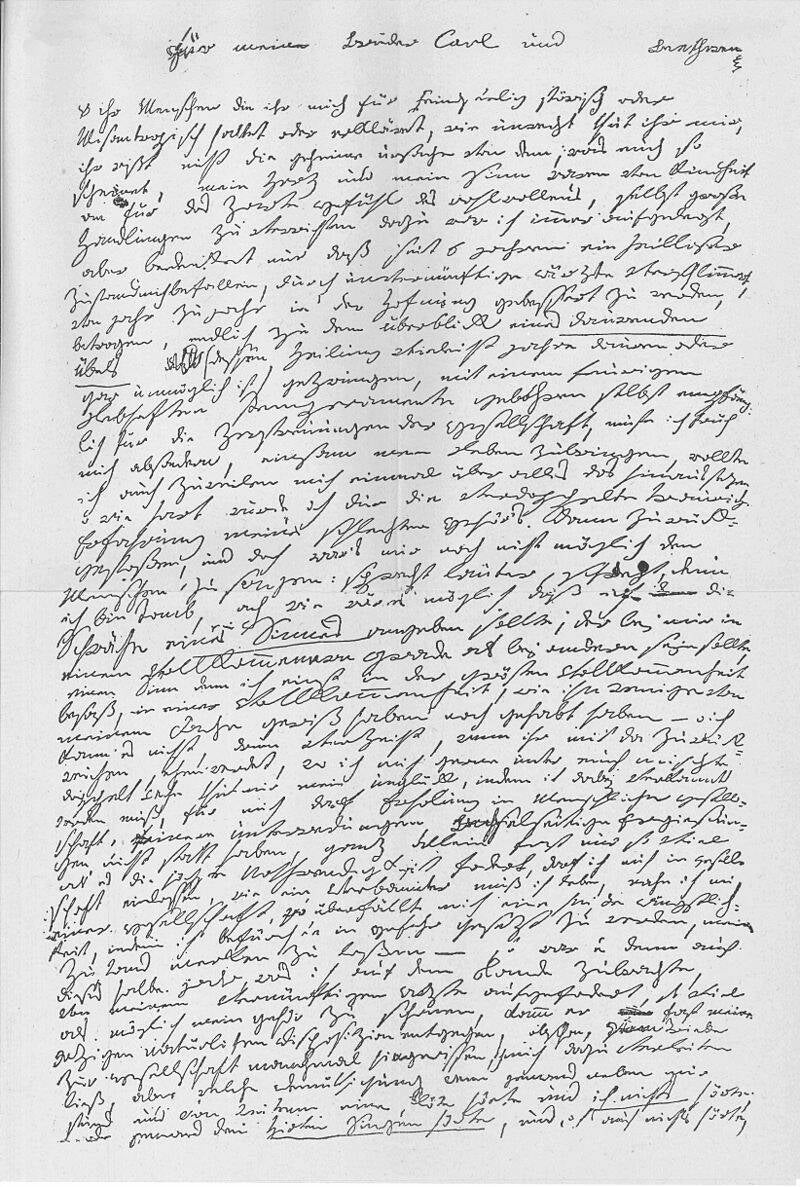 Für meine Brüder Carl und Beethowen
O ihr Menschen die ihr mich für Feindseelig störisch oder
Misantropisch haltet oder erkläret, wie unrecht thut ihr mir,
ihr wißt nicht die geheime ursache von dem; was euch so
scheinet, mein Herz und mein Sinn waren von Kindheit
an für das Zarte gefühl des wohlwollens, selbst große
Handlungen zu verrichten dazu war ich immer aufgelegt,
aber bedenket nur daß seit 6 jahren ein heilloser
Zustand mich befallen, durch unvernünftige ärzte verschlimmert
von jahr zu jahr in der Hofnung gebessert zu werden,
betrogen, endlich zu dem überblick eines daurenden
Übels (dessen Heilung vieleicht jahre dauren oder
gar unmöglich ist) gezwungen, mit einem feurigen
Lebhaften Temperamente gebohren selbst empfäng-
lich für die Zerstreuungen der Gesellschaft, muste ich früh
mich absondern, einsam mein Leben zubringen, wollte
ich auch zuweilen mich einmal über alles das hinaussezen
o wie hart wurde ich dur die verdoppelte traurige
Erfahrung meines schlechten Gehör's dann zurück-
gestoßen, und doch war's mir noch nicht möglich den
Menschen zu sagen: sprecht lauter, schrejt, denn
ich bin taub, ach wie wär es möglich daß ich die
Schwäche eines Sinnes angeben sollte; der bej mir in
einem Vollkommenern grade als bej andern sein sollte,
einen Sinn denn ich einst in der grösten Vollkommenheit
besaß, in einer Vollkommenheit, wie ihn wenige von
meinem Fache gewiß haben noch gehabt haben — o ich
kann es nicht, drum verzeiht, wenn ihr mich da zurück-
weichen sehen werdet, wo ich mich gerne unter euch mischte
doppelt Wehe thut mir mein unglück, indem ich dabej verkannt
werden muß, für mich darf Erholung in Menschlicher Gesell-
schaft, feinere unterredungen, wechselseitige Ergießun-
gen nicht statt haben, ganz allein fast nur so viel
als es die höchste Nothwendigkeit fodert, darf ich mich in gesell-
schaft einlassen, wie ein Verbannter muß ich leben, nahe ich mich
einer Gesellschaft, so überfällt mich eine heiße ängstlich-
keit, indem ich befürchte in gefahr gesezt zu werden, meinen
Zustand merken zu laßen — so war es denn auch
dieses halbe jahr was ich auf dem Lande zubrachte,
von meinem vernünftigen Arzte aufgefodert, so viel
als möglich mein Gehör zu schonen, kam er fast meiner
jezigen natürlichen Disposizion entgegen, obschon, vom Triebe
zur Gesellschaft manchmal hingerissen, ich mich dazu verleiten
ließ, aber welche Demüthigung wenn jemand neben mir
stund und von weitem eine Flöte hörte und ich nichts hörte;
oder jemand den Hirten Singen hörte, und ich auch nichts hörte,